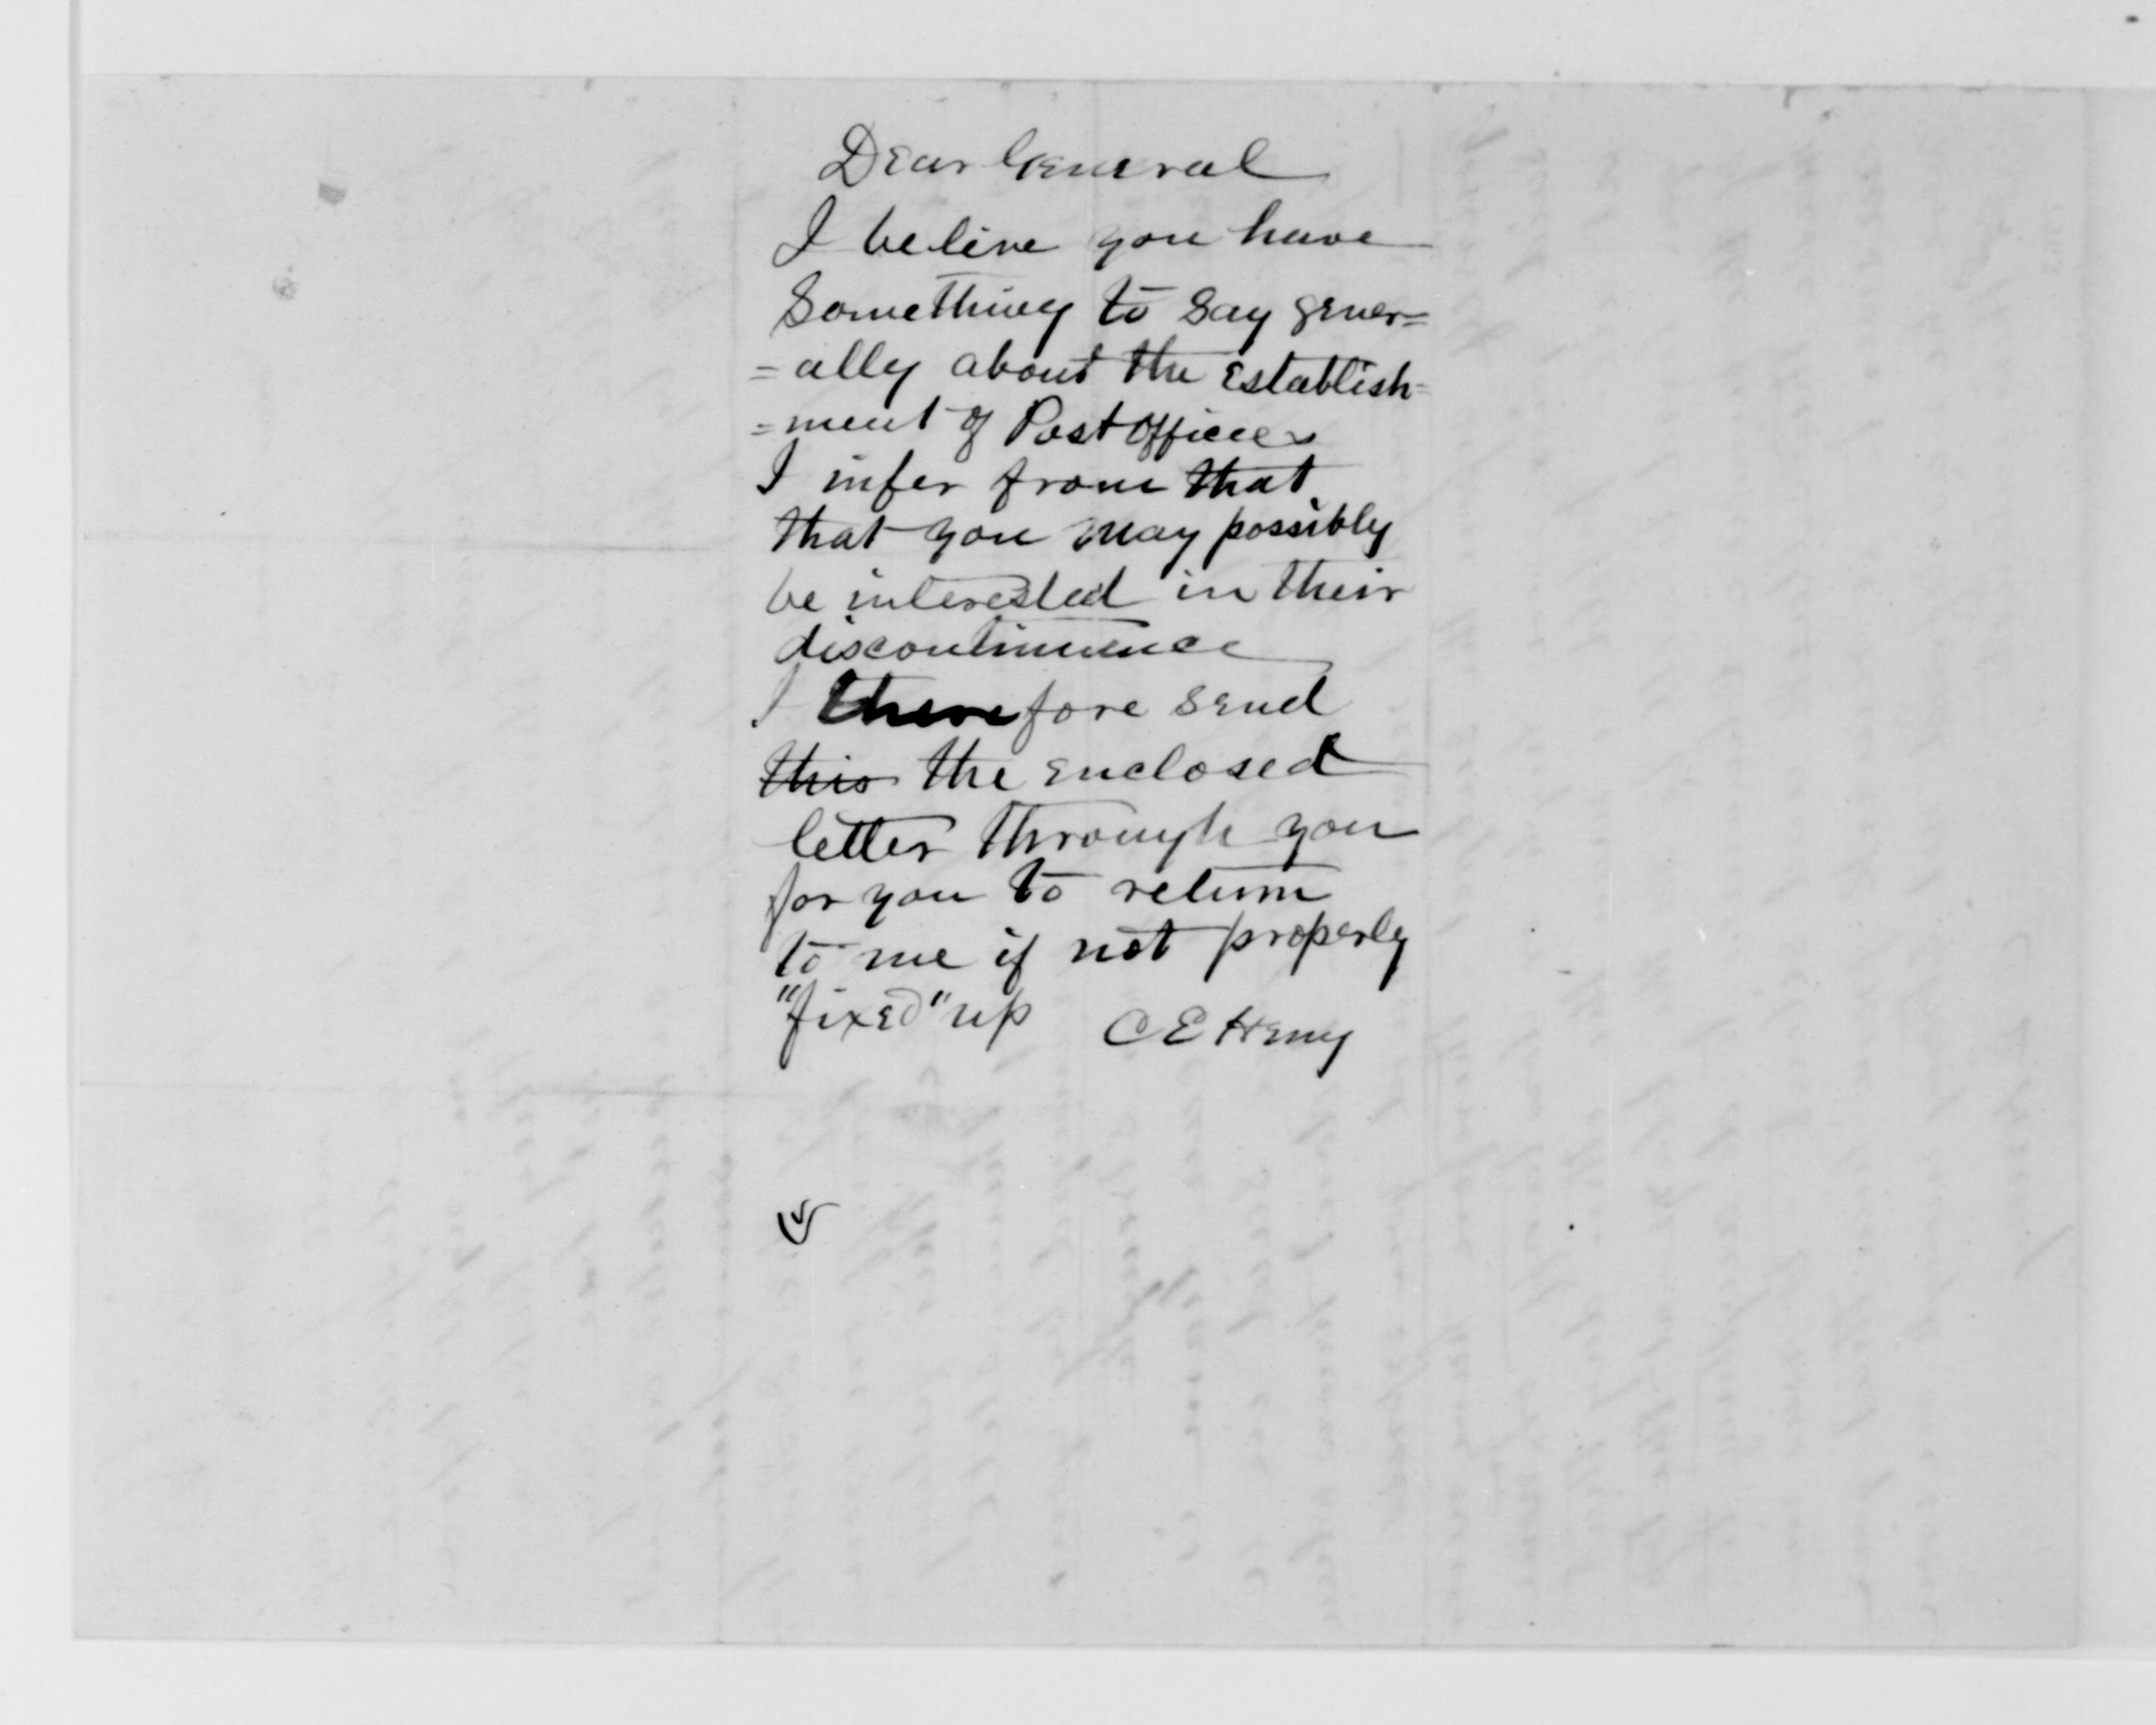 Dear General
I belive you have
Something to say gener=
=ally about the Establish=
=ment of Post Offices
I infer from that
that you may possibly
be interested in their
discontinuance
I therefore send
this the enclosed
letter through you
for you to return
to me if not properly
"fixed" up C E Henry